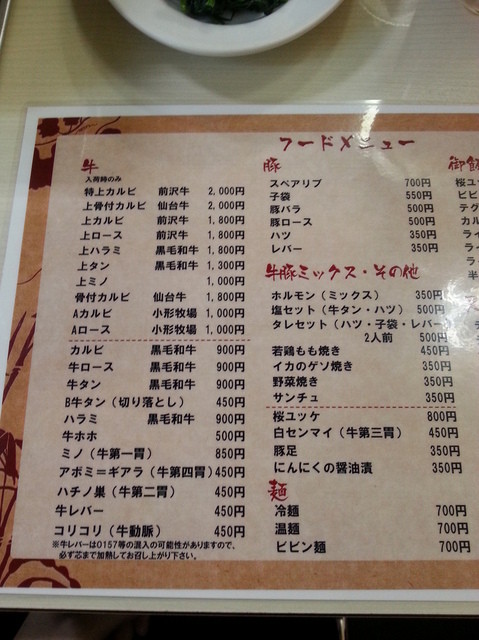 フードメニュー
牛
入荷時のみ
特上カルビ 前沢牛 2,000円
上骨付カルビ 仙台牛 2,000円
上カルビ 前沢牛 1,800円
上ロース 前沢牛 1,800円
上ハラミ 黒毛和牛 1,800円
上タン 黒毛和牛 1,300円
上ミノ 1,000円
骨付カルビ 仙台牛 1,800円
Aカルビ 小形牧場 1,000円
Aロース 小形牧場 1,000円
カルビ 黒毛和牛 900円
牛ロース 黒毛和牛 900円
牛タン 黒毛和牛 900円
B牛タン（切り落とし） 450円
ハラミ 黒毛和牛 900円
牛ホホ 500円
ミノ（牛第一胃） 850円
アボミ＝ギアラ（牛第四胃）450円
ハチノ巣（牛第二胃） 450円
牛レバー 450円
コリコリ（牛動脈） 450円
※牛レバーはO157等の混入の可能性がありますので、
必ず芯まで加熱してお召し上がり下さい。
豚
スペアリブ 700円
子袋 550円
豚バラ 500円
豚ロース 500円
ハツ 350円
レバー 350円
牛豚ミックス・その他
ホルモン（ミックス） 350円
塩セット（牛タン・ハツ） 500円
タレセット（ハツ・子袋・レバー）
2人前 500円
若鶏もも焼き 450円
イカのゲソ焼き 350円
野菜焼き 350円
サンチュ 350円
桜ユッケ 800円
白センマイ（牛第三胃） 450円
豚足 350円
にんにくの醤油漬 350円
麺
冷麺 700円
温麺 700円
ビビン麺 700円
御飯
桜ユ
ビビ
テグ
カル
ライ
ライ
ラ
半